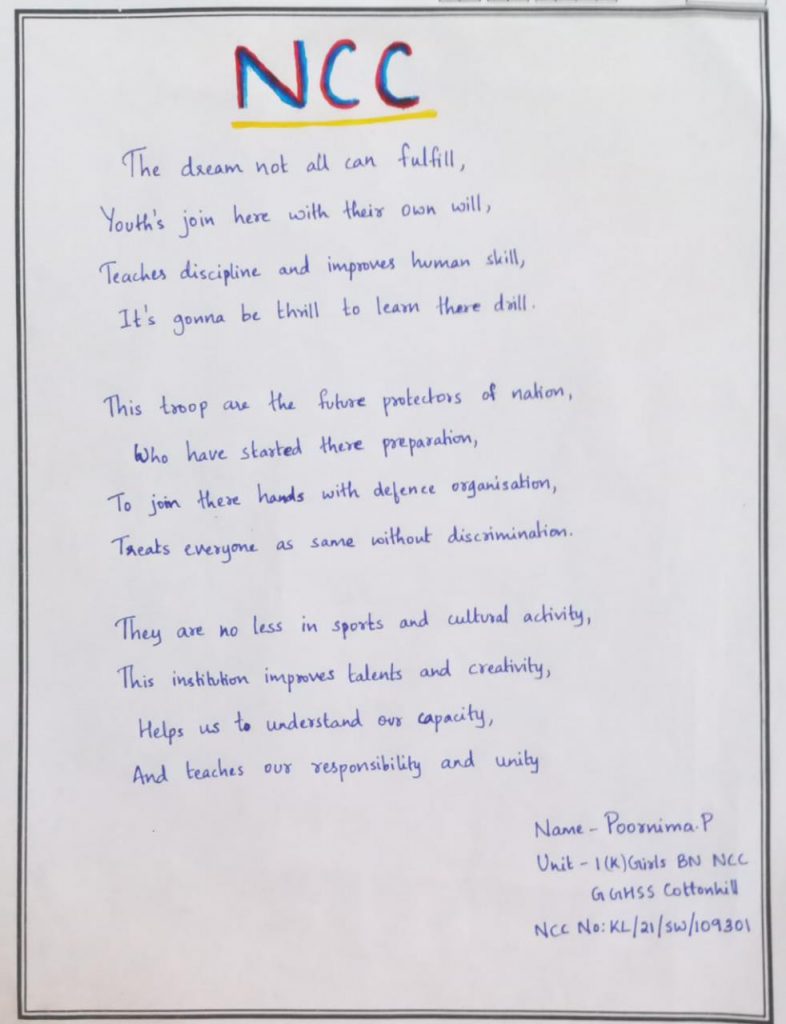 NCC
The dream not all can fulfill,
Youth's join here with their own will,
Teaches discipline and improves human skill,
It's gonna be thrill to learn there drill.
This troop are the future protectors of nation,
Who have started there preparation,
To join there hands with defence organisation,
Treats everyone as same without discrimination.
They are no less in sports and cultural activity,
This institution improves talents and creativity,
Helps us to understand our capacity,
And teaches our responsibility and unity
Name - Poornima.P
Unit - 1(K)Girls BN NCC
G GHSS Cottonhill
NCC No: KL/21/SW/109301